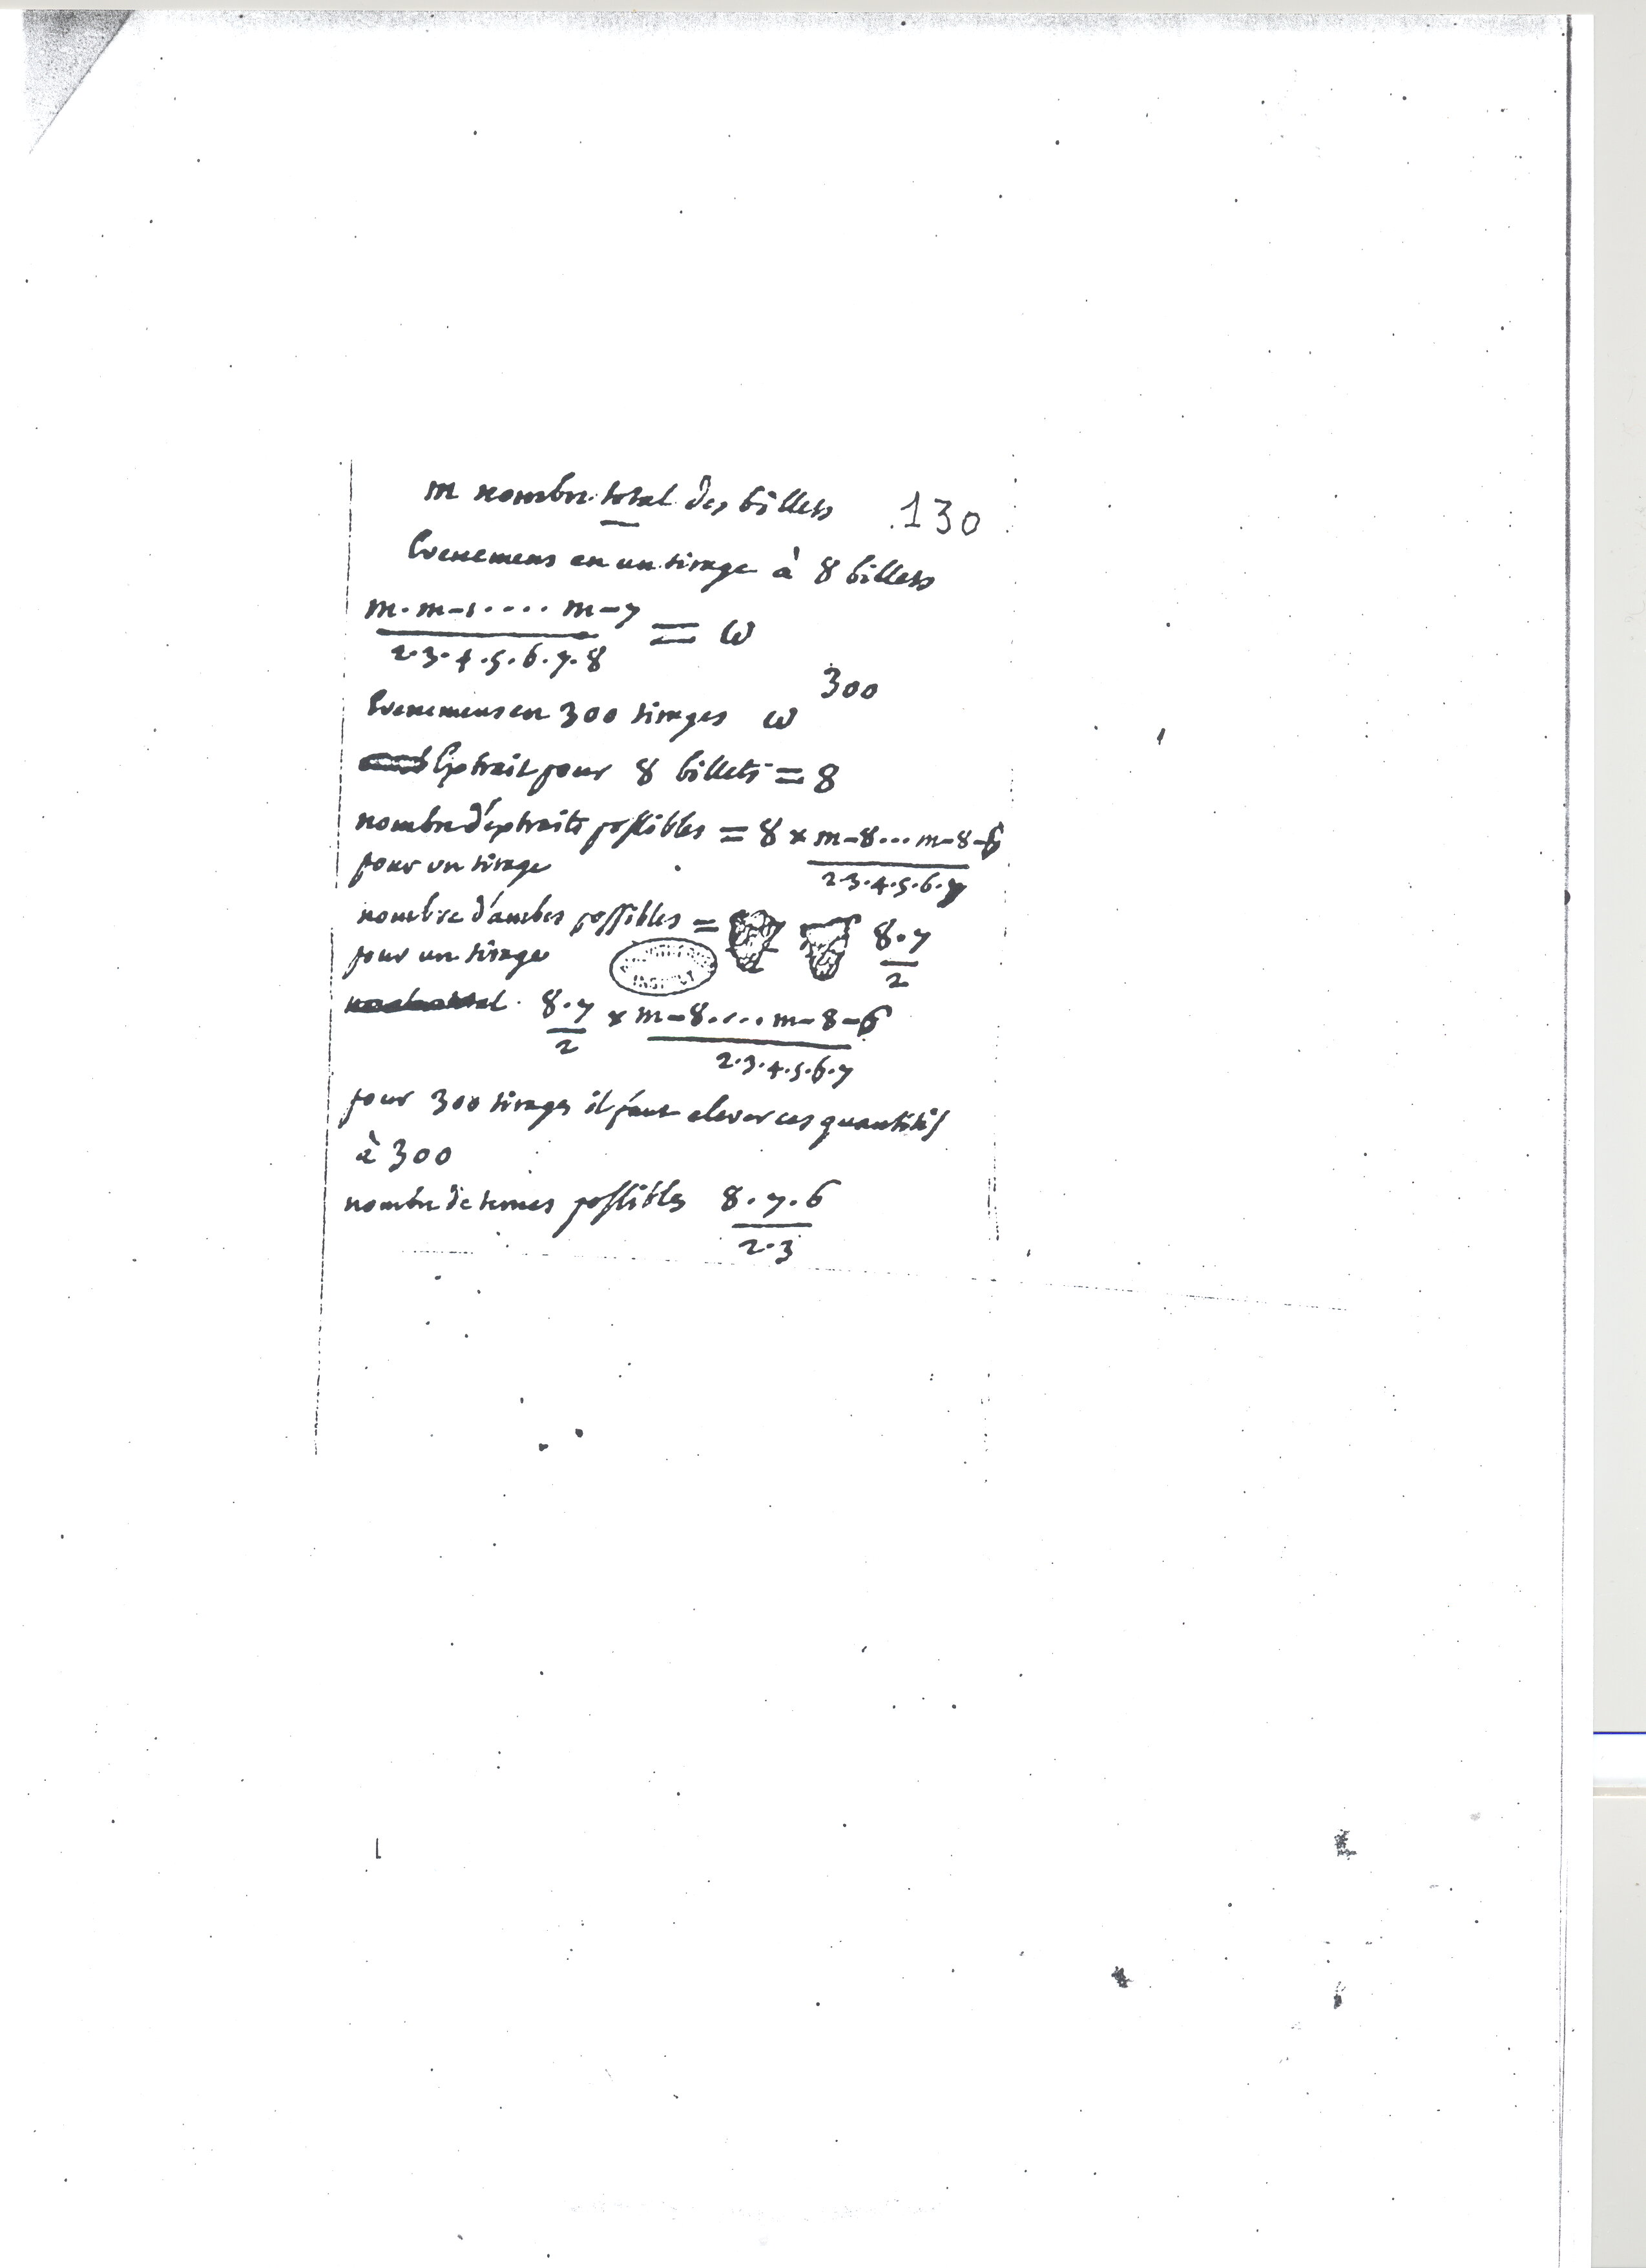 m nombre total des billets 130
Evenemens en un tirage à 8 billets
m.m-1.... m-7
2.3.4.5.6.7.8 = ω
Evenemens en 300 tirages ω^300
Extrait pour 8 billets = 8
nombre d'extraits possibles = 8 × m-8... m-8-6
pour un tirage 2.3.4.5.6.7
nombre d'ambes possibles = 8.7
pour un tirage 2
8.7 × m-8.... m-8-6
2 2.3.4.5.6.7
pour 300 tirages il faut elever ces quantités
à 300
nombre de ternes possibles 8.7.6
2.3